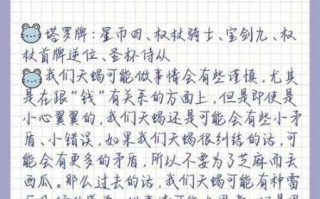 塔罗牌：星币四、权杖骑士、宝剑九、权
杖首牌逆位、圣杯侍从
我们天蝎可能做事情会有些谨慎，尤其
是在跟“钱”有关系的方面上，但是即使是
小心翼翼的，我们天蝎还是可能会有些小矛
盾、小错误，如果我们天蝎很纠结的话，可
能会有更多的矛盾，所以不要为了芝麻而丢
西瓜。那么过去的话，我们天蝎可能有种雷